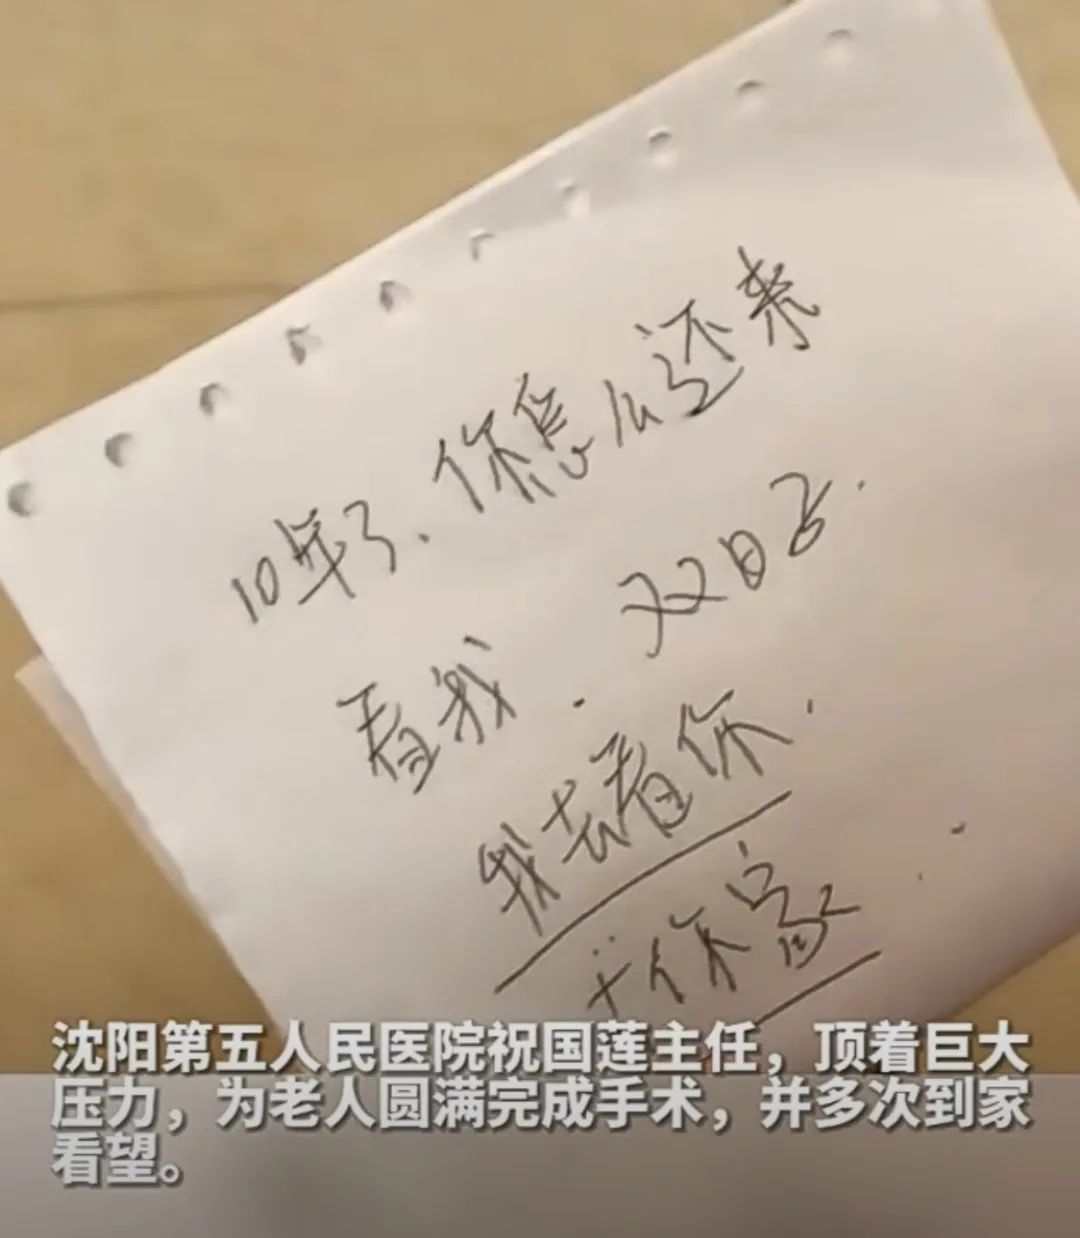 10年了、你怎么还来
看我．双日子．
我去看你．
你家
沈阳第五人民医院祝国莲主任，顶着巨大
压力，为老人圆满完成手术，并多次到家
看望。